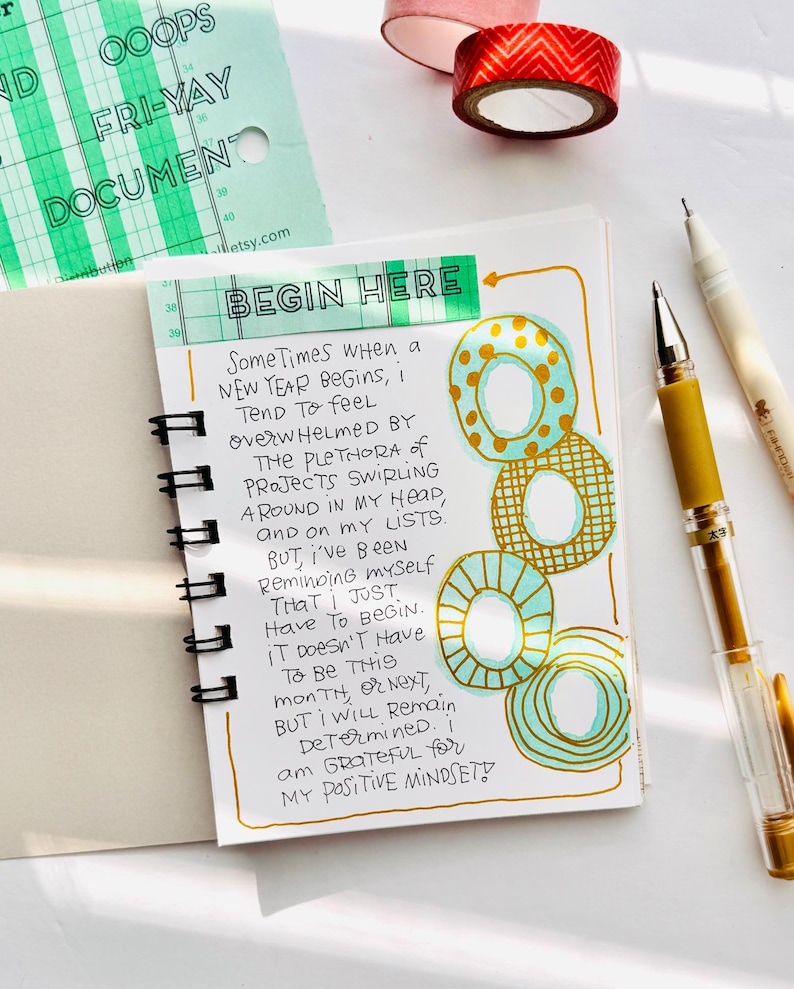 OOOPS
ND
FRI-YAY
DOCUMENT
35
36
37
38
39
40
etsy.com
Distribution
37
38
39
BEGIN HERE
SOMETIMES WHEN A
NEW YEAR BEGINS, I
TEND TO FEEL
OVERWHELMED BY
THE PLETHORA OF
PROJECTS SWIRLING
AROUND IN MY HEAD,
AND ON MY LISTS.
BUT, I'VE BEEN
REMINDING MYSELF
THAT I JUST
HAVE TO BEGIN.
IT DOESN'T HAVE
TO BE THIS
MONTH, OR NEXT,
BUT I WILL REMAIN
DETERMINED. I
AM GRATEFUL FOR
MY POSITIVE MINDSET!
太字
AIHAO